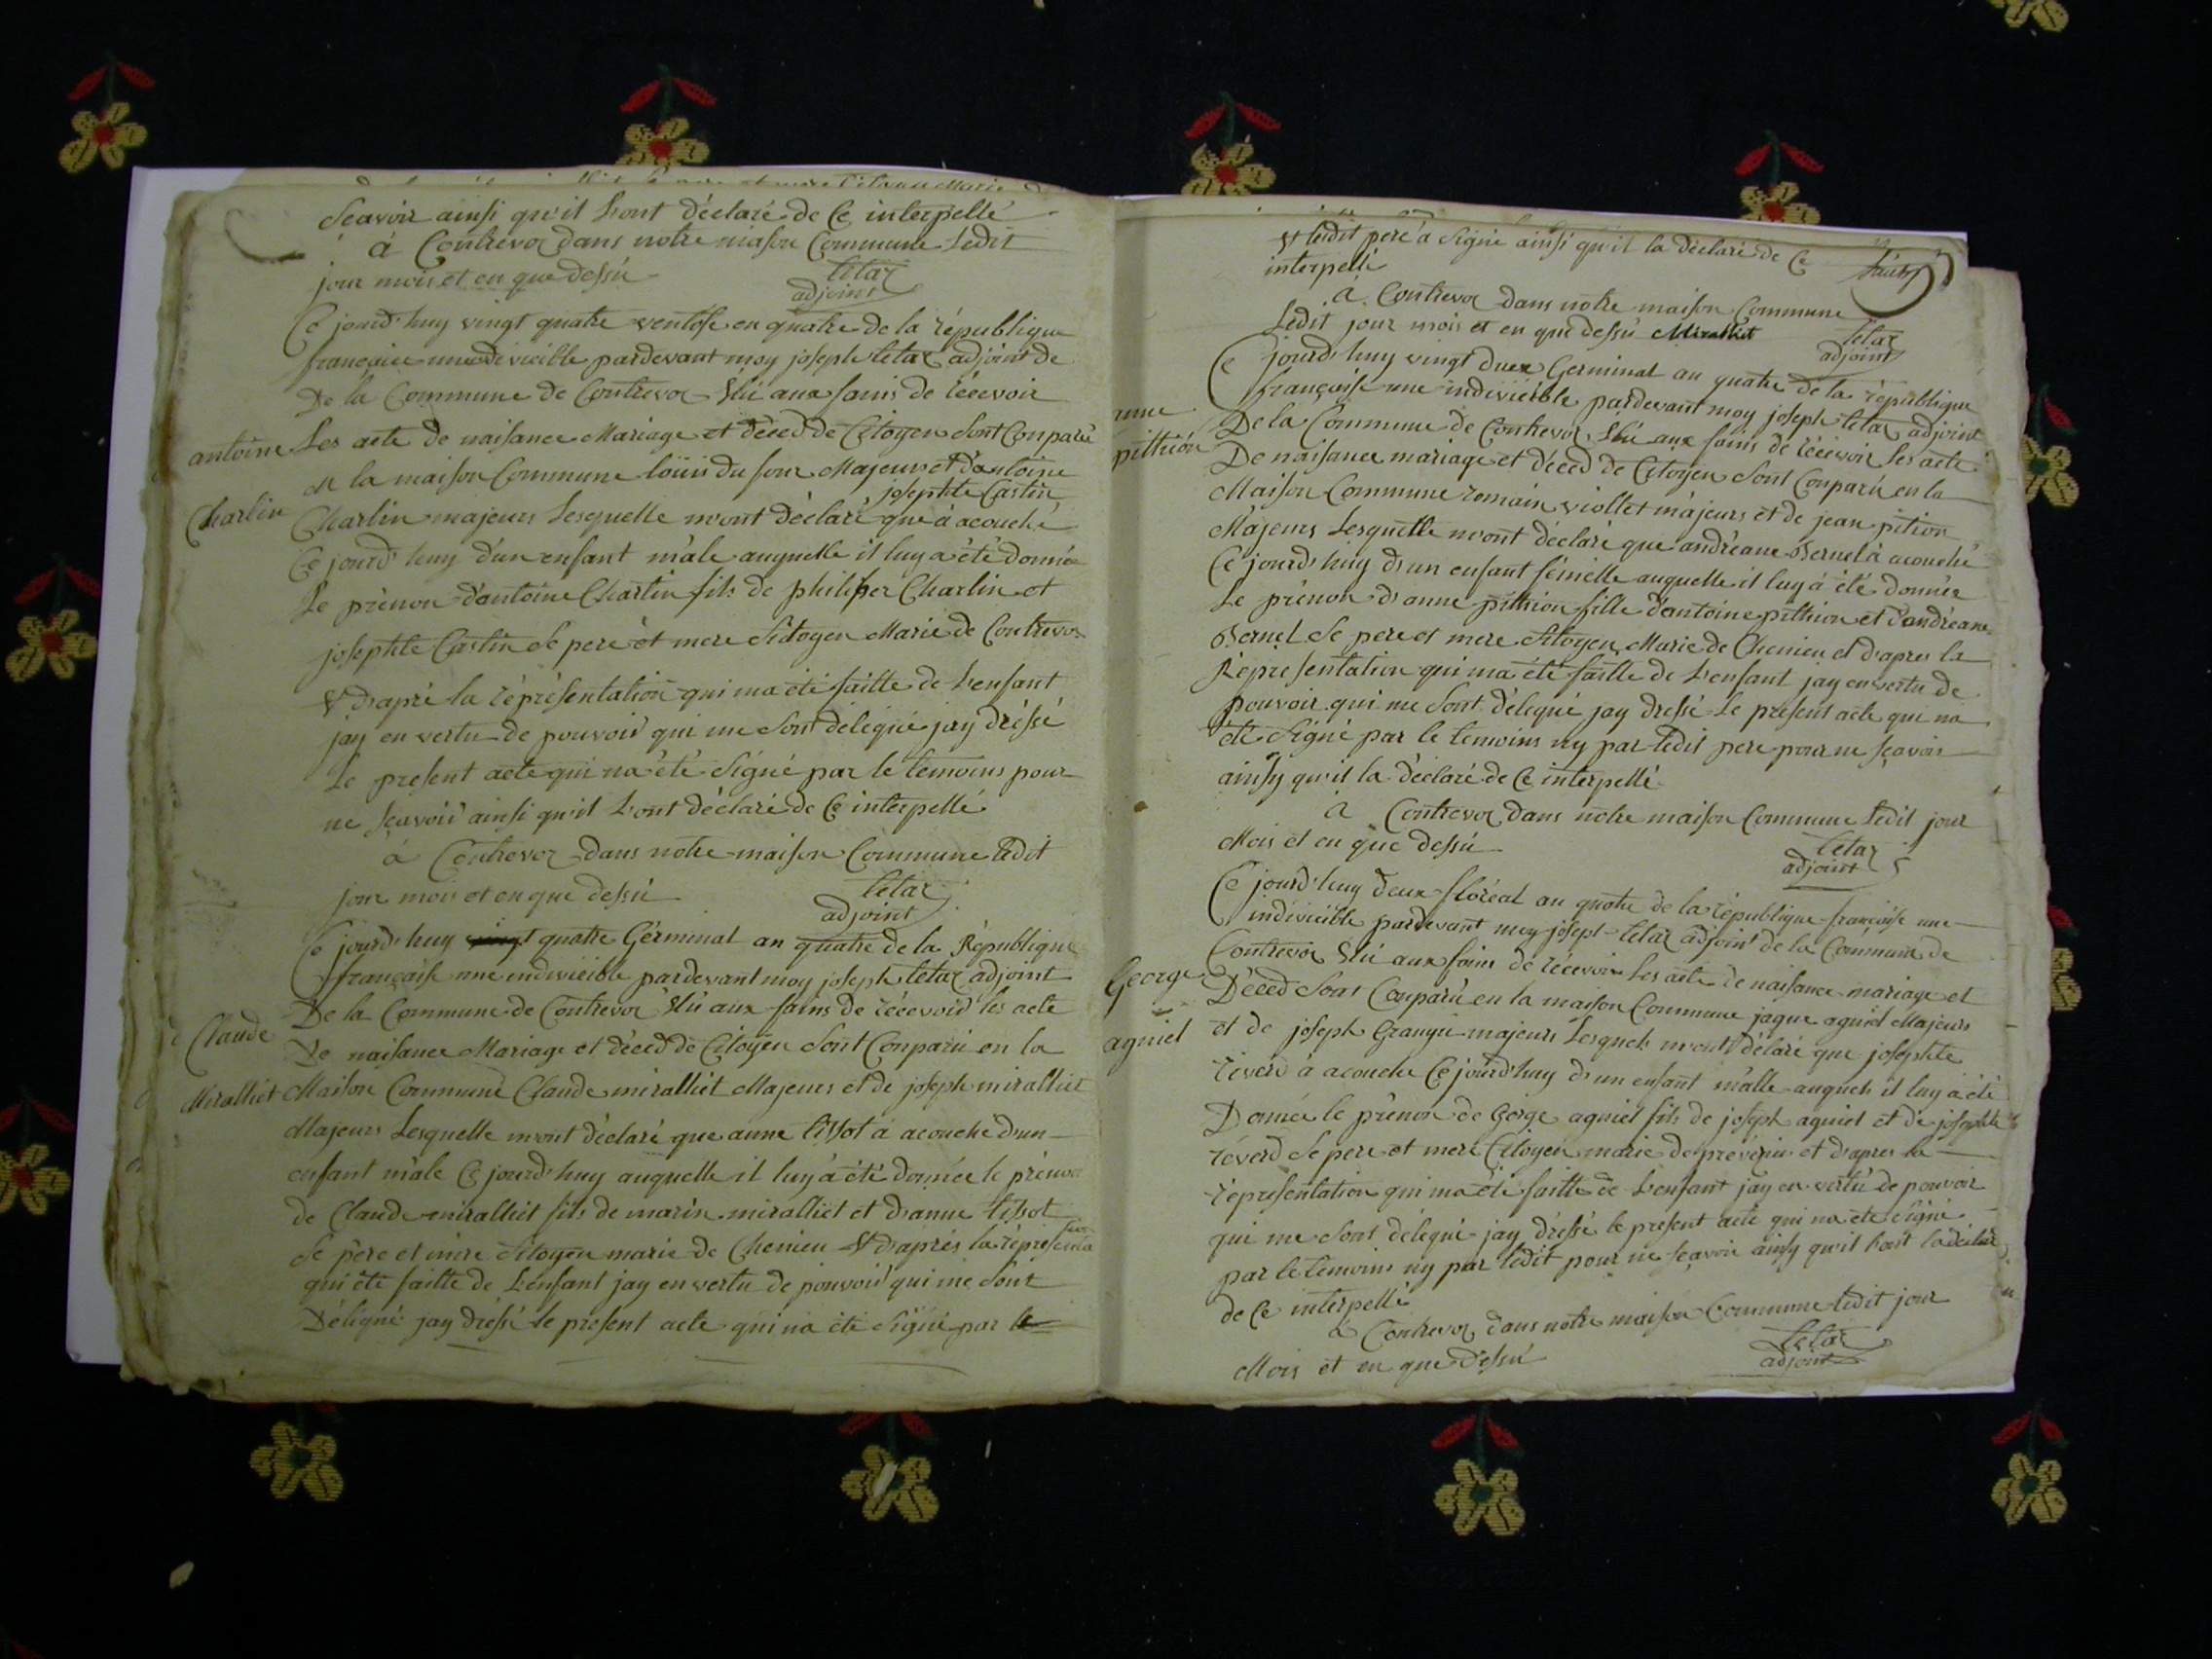 Seavoir ainsi qu'il L'ont déclaré de Ce interpellé
à Contrevoz dans notre maison Commune Ledit
jour mois et en que dessù
tétaz
adjoint
Ce jourd'huy vingt quatre ventose en quatre de la république
française une divicible pardevant moy joseph tétaz adjoint de
De la Commune de Contrevoz Elû aux foins de récevoir
antoine
Les acte de naisance Mariage et déced de Citoyen Sont Conparù
en la maison Commune loüis dufour Majeurs et d'antoine
josephte Castin
Charlin
Charlin majeurs Lesquelle m'ont déclaré que à acouché
Ce jourd'huy d'un enfant mâle auquelle il luy a été donnée
Le prénon d'antoine Charlin fils de philiper Charlin et
josephte Castin Se pere et mere Sitoyen Marie de Contrevoz
Et d'apré la réprésentation qui ma été faitte de L'enfant
jay en vertu de pouvoir qui me Sont déléqué jay dréssé
Le présent acte qui na été Signé par le temoins pour
ne Sçavoir ainsi qu'il L'ont déclaré de Ce interpellé
à Contrevoz dans notre maison Commune Ledit
jour mois et en que dessù
tétaz
adjoint
Ce jourd'huy vingt quatre Gérminal an quatre de la République
française une indivicible pardevant moy joseph tetaz adjoint
De la Commune de Contrevoz Elû aux foins de récevoir les acte
Claude
De naisance Mariage et déced de Citoyen Sont Conparù en la
Miralliet
Maison Commune Claude miralliet Majeurs et de joseph miralliet
Majeurs Lesquelle m'ont déclaré que anne tissot à acouché d'un
enfant mâle Ce jourd'huy auquelle il luy à été donnée le prénon
de Claude miralliet fils de marin miralliet et d'anne tissot
Se père et mère Sitoyen marie de Chemieu Et d'aprés la réprésenta
tion
qui été faitte de L'enfant jay en vertu de pouvoir qui me Sont
Déléqué jay dréssé le présent acte qui na été Signé par le
Et Ledit pere à Signé ainsi qu'il la déclaré de Ce
interpellé
à Contrevoz dans notre maison Commune
Ledit jour mois et en que dessù Miralliet
tetaz
adjoint
Ce jourd'huy vingt duex Germinal an quatre de la république
française une indivicible pardevant moy joseph tétaz adjoint
nne
De la Commune de Contrevoz Elû aux foins de récevoir Les acte
pithion
De naisance mariage et déced de Citoyen Sont Conparù en la
Maison Commune romain viollet májeurs et de jean pition
Májeurs Lesquelle m'ont déclaré que andréane Bernel à acouché
Ce jourd'huy d'un enfant fémelle auquelle il luy à été donnée
Le prénon d'anne pithion fille d'antoine pithion et d'andréane
Bernel Se pere et mere Sitoyen Marie de Chemieu et d'apres la
Répresentation qui ma été faitte de L'enfant jay en vertu de
pouvoir qui me Sont déléqué jay dressé Le présent acte qui na
été Signé par le temoins ny par Ledit pere pour ne Sçavoir
ainsy qu'il la déclaré de Ce interpellé
à Contrevoz dans notre maison Commune Ledit jour
Mois et en que dessù
tetaz
adjoint
Ce jourd'huy deux floréal an quatre de la république française une
indivicible pardevant moy joseph tétaz adjoint de la Commune de
Contrevoz Elû aux foins de récevoir Les acte de naisance mariage et
George
Déced Sont Conparù en la maison Commune jaque agniel Majeurs
agniel
et de joseph Grangé majeurs Lesquels m'ont déclaré que josephte
réverd à acouché Ce jourd'huy d'un enfant mâlle auquels il luy à été
Donnée le prénon de Gorge agniel fils de joseph agniel et de josephte
réverd Se pere et mere Citoyen marie de préveyzieu et d'apres la
répresentation qui ma été faitte de L'enfant jay en vertu de pouvoir
qui me Sont déléqué jay dréssé le present acte qui na été Signé
par le temoins ny par Ledit pour ne Sçavoir ainsy qu'il L'ont la déclaré
de Ce interpellé
à Contrevoz dans notre maison Commune Ledit jour
Mois et en que dessù
tétaz
adjoint